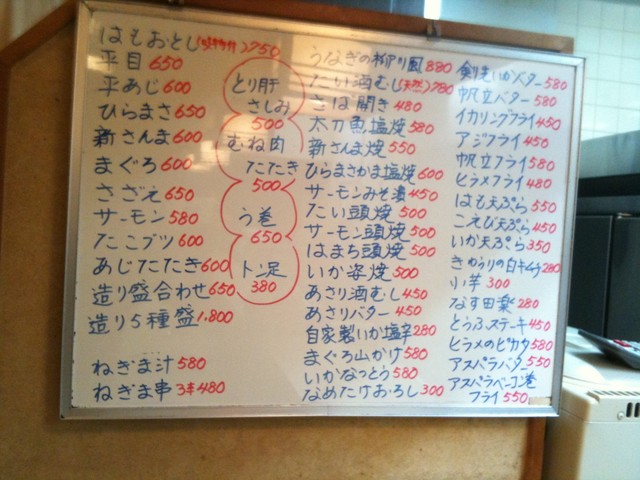 はもおとし 750
平目 650
平あじ 600
ひらまさ 650
新さんま 600
まぐろ 600
さざえ 650
サーモン 580
たこブツ 600
あじたたき 600
造り盛合わせ 650
造り5種盛 1,800
ねぎま汁 580
ねぎま串 3本 480
とり肝
さしみ
500
むね肉
たたき
500
う巻
650
トン足
380
うなぎの柳川風 880
たい酒むし(天然) 780
さば開き 480
太刀魚塩焼 580
新さんま焼 550
ひらまさかま塩焼 600
サーモンみそ漬 450
たい頭焼 500
サーモン頭焼 500
はまち頭焼 500
いか姿焼 500
あさり酒むし 450
あさりバター 450
自家製いか塩辛 280
まぐろ山かけ 580
いかなっとう 580
なめたけおろし 300
剣先いかバター 580
帆立バター 580
イカリングフライ 450
アジフライ 450
帆立フライ 580
ヒラメフライ 480
はも天ぷら 550
こえび天ぷら 450
いか天ぷら 350
きゅうりの白キムチ 280
小芋 300
なす田楽 280
とうふステーキ 450
ヒラメのピカタ 580
アスパラバター 550
アスパラベーコン巻
フライ 550